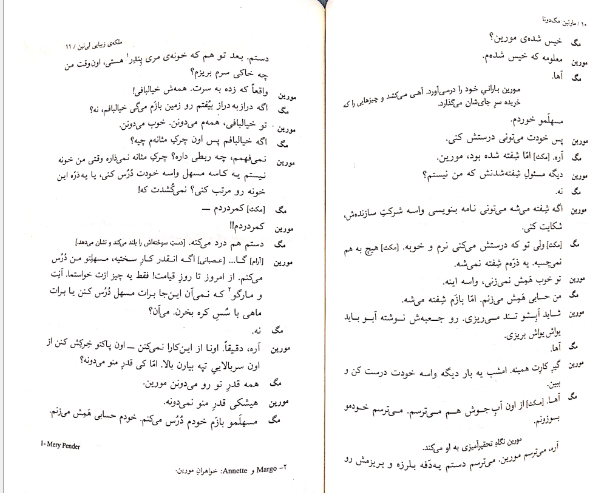 ۱۰ / مارتین مک‌دونا
مگ خیس شده‌ی مورین؟
مورین معلومه که خیس شده‌م.
مگ آها.
مورین بارانی خود را درمی‌آورد. آهی می‌کشد و چیزهایی را که
خریده سرِ جای‌شان می‌گذارد.
مگ مسهلَمو خوردم.
مورین پس خودت می‌تونی درستش کنی.
مگ آره. [مکث] امّا تِفته شده بود، مورین.
مورین دیگه مسئولِ تِفته‌شدنش که من نیستم؟
مگ نه.
مورین اگه تِفته می‌شه می‌تونی نامه بنویسی واسه شرکتِ سازنده‌ش،
شکایت کنی.
مگ [مکث] ولی تو که درستش می‌کنی نرم و خوبه. [مکث] هیچ به هم
نمی‌چسبه. یه ذرّه‌م تِفته نمی‌شه.
مورین تو خوب هَمِش نمی‌زنی، واسه اینه.
مگ من حسابی هَمِش می‌زنم. امّا بازم تِفته می‌شه.
مورین شاید آبِتو تند می‌ریزی. رو جعبه‌ش نوشته آبو باید
یواش‌یواش بریزی.
مگ آها.
مورین گیرِ کارِت همینه. امشب یه بار دیگه واسه خودت درست کن و
ببین.
مگ آها. [مکث] از اون آبِ‌جوش هم می‌ترسم. می‌ترسم خودمو
بوزونم.
مورین نگاهِ تحقیرآمیزی به او می‌کند.
آره. می‌ترسم مورین. می‌ترسم دستم یه‌دَفّه بلرزه و بریزمش رو
ملکه‌ی زیبایی لی‌نین / ۱۱
دستم. بعد تو هم که خونه‌ی مری پندِر۱ هستی. اون‌وقت من
چه خاکی سرم بریزم؟
مورین واقعاً که زده به سرت. همه‌ش خیالبافی!
مگ اگه درازبه‌دراز بیُفتم رو زمین بازم می‌گی خیالبافم، نه؟
مورین تو خیالبافی، همه‌م می‌دونن. خوب می‌دونن.
مگ اگه خیالبافم پس اون چرکِ مثانه‌م چیه؟
مورین نمی‌فهمم، چه ربطی داره؟ چرکِ مثانه نمی‌ذاره وقتی من خونه
نیستم یه کاسه مسهل واسه خودت دُرُس کنی، یا یه‌ذرّه این
خونه رو مرتب کنی؟ نمی‌کُشدت که!
مگ [مکث] کمردردم ــ
مورین کمردردم!!
مگ دستم هم درد می‌کنه. [دستِ سوخته‌اش را بلند می‌کند و نشان می‌دهد]
مورین [آرام] گا... [عصبانی] اگه انقدر کارِ سختیه، مسهلِتو من دُرُس
می‌کنم. از امروز تا روزِ قیامت! فقط یه چیز ازت خواستما. آنِت
و مارگو۲ که نمی‌آن این‌جا برات مسهل دُرُس کنن یا برات
ماهی با سُسِ کره بخرن. می‌آن؟
مگ نه.
مورین آره، دقیقاً. اونا از این‌کارا نمی‌کنن ــ اون پاکتو خِرکِش کنن از
اون سربالاییِ تپه بیارن بالا. امّا کی قدر منو می‌دونه؟
مگ همه قدرِ تو رو می‌دونن مورین.
مورین هیشکی قدرِ منو نمی‌دونه.
مگ مسهلَمو بازم خودم دُرُس می‌کنم. خودم حسابی هَمِش می‌زنم.
1- Mery Pender
۲- Margo و Annette: خواهرانِ مورین.